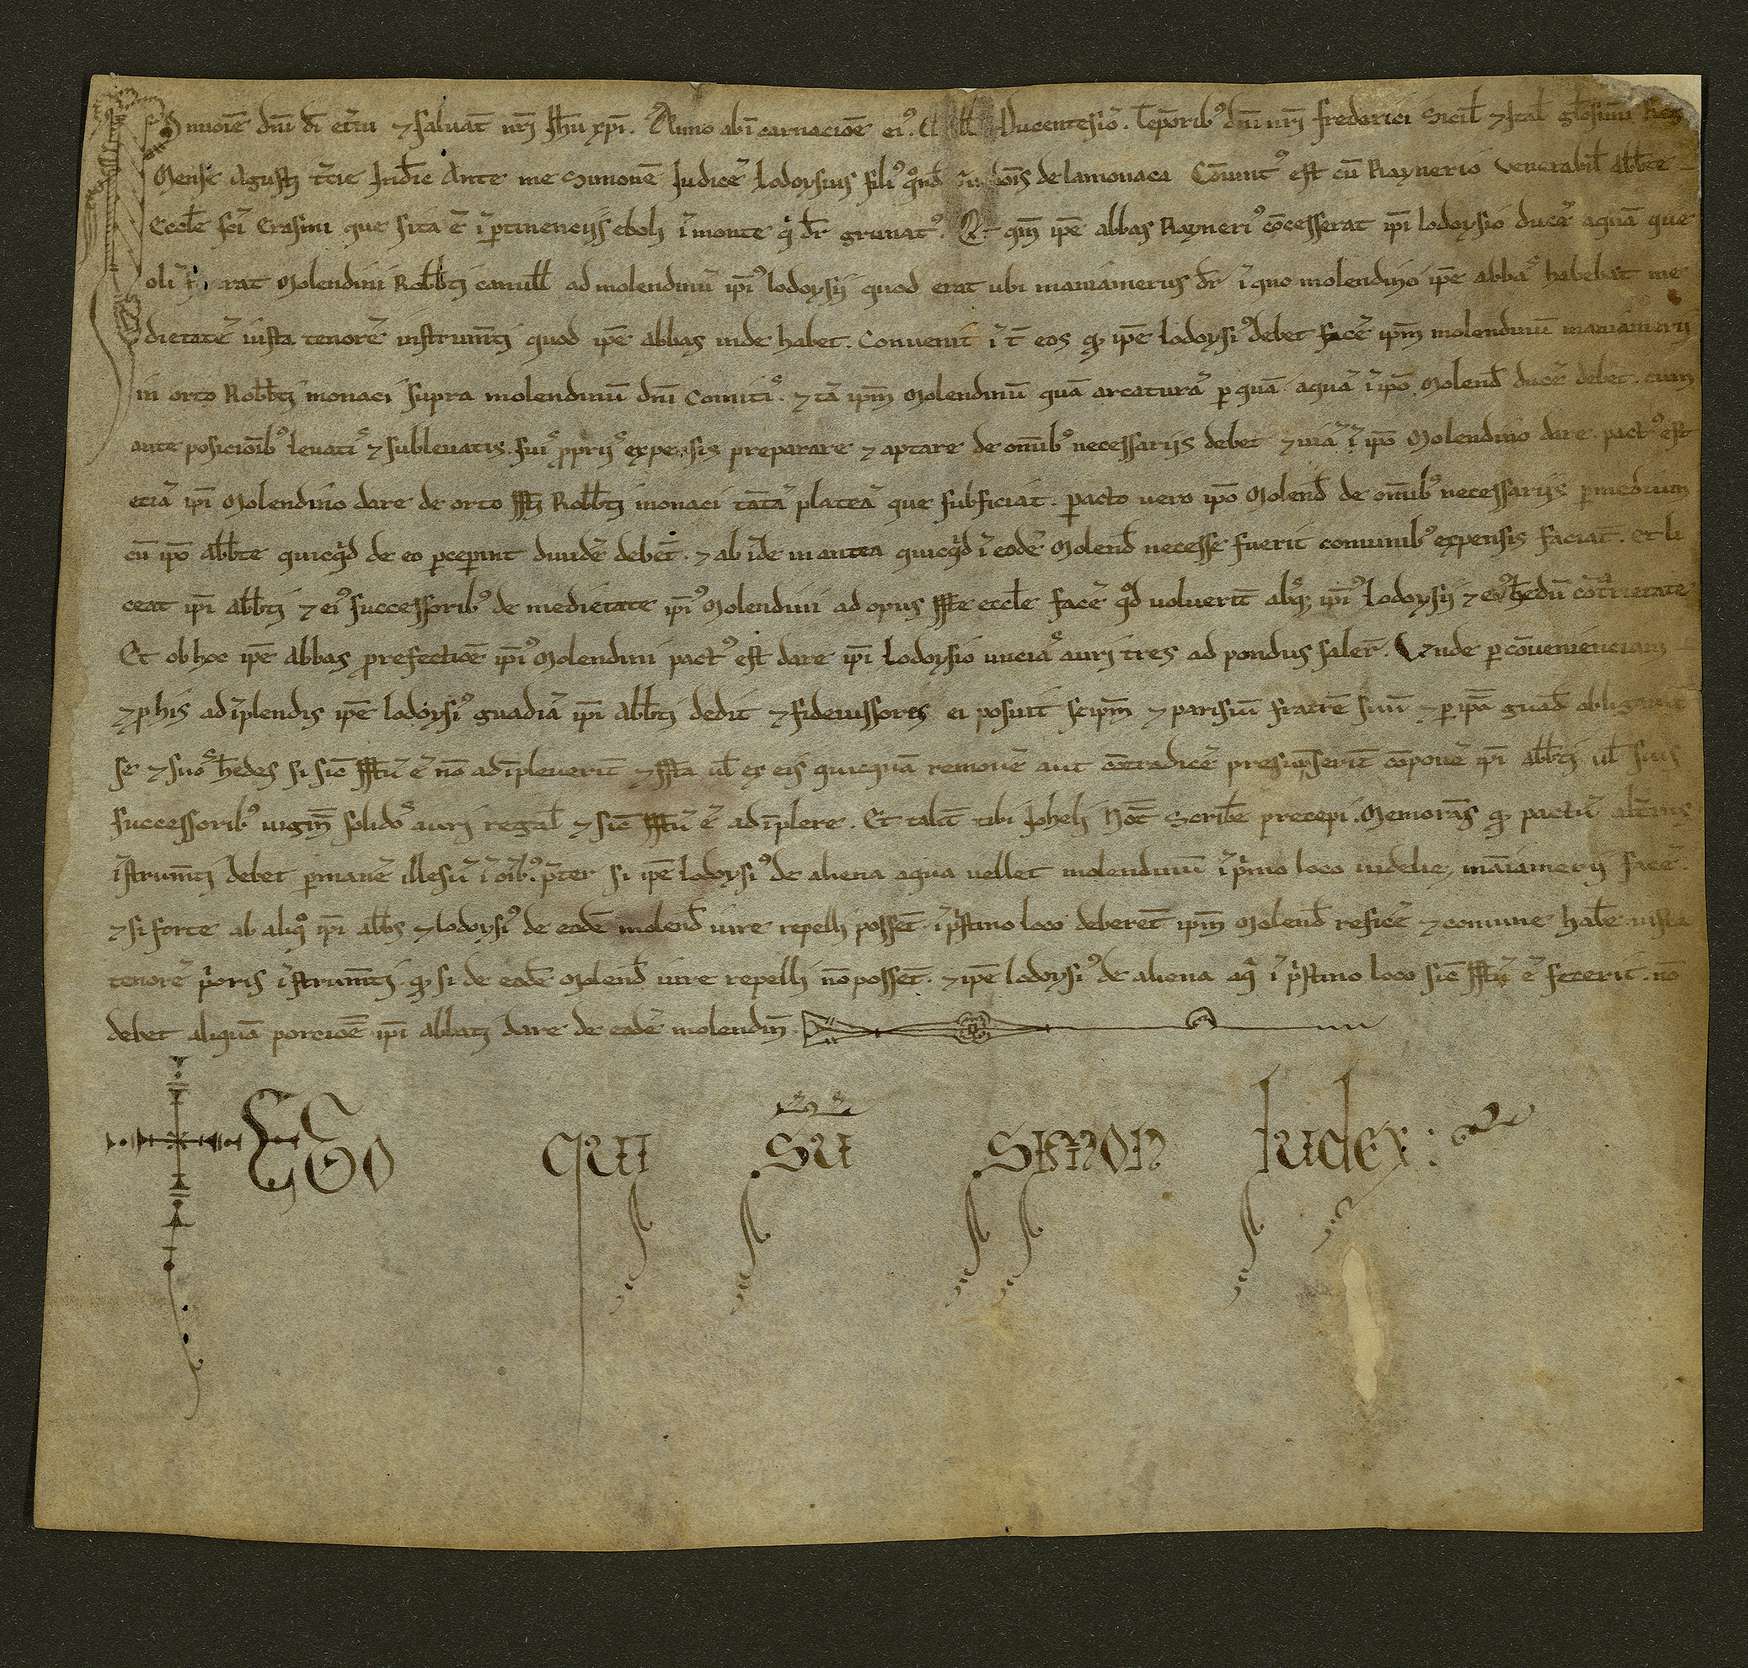 In noīe dñi dī et̃ni ⁊ saluat̃ nrī Ih̃u xp̃i. Anno ab īcarnaciōe ei⁹. Ducentesīo. Tēporib⁹ dñi nrī frederici Sicił ⁊ Ital gl̃osissimi Reg
Mense Agusti t̃cie Indic̃ Ante me Simonē Iudicē Lodoysius fili⁹ qōnd de lamonaca Cōuint⁹ est cū Raynerio venerabił abb̃te
Eccl̃e sc̃i Erasmi que sita ē ī p̱tinenciis eboli ī monte q̄ dr̃ granat⁹. Et qm̃ ip̃e abbas Rayneri⁹ cōcesserat ip̃i lodoysio ducē aquā que
oli erat Molendini Robb̃ti camułł ad molendinū ip̃i⁹ lodoysii quod erat ubi maniamerius dr̃ ī quo molendino ip̃e abbas habebat me
dietatē iusta tenorē instrum̃ti quod ip̃e abbas inde habet. Conuenit ī t̃ eos q̨ ip̃e Lodoysi⁹ debet facē ip̃m molendinū maniamerii
in orto Robb̃ti monaci supra molendinū dñi Comitis ⁊ tā ip̃m Molendinū quā arcaturā p̱ quā aquā ī ip̃o Molend̃ ducē debet. cum
ante posiciōib⁹ leuatis ⁊ subleuatis. suis p̱priis expensis preparare ⁊ aptare de omīb⁹ necessariis debet ⁊ uiā ī ip̃o Molendino dare. pact⁹ est
etiā ip̃i Molendino dare de orto sst̃i Robb̃ti monaci tātā plateā que subficiat. p̱acto uero ip̃o Molend̃ de omīb⁹ necessariis p̱ medium
cū ip̃o abb̃te quicq̄d de eo p̱cep̱int diuidē debet̃. ⁊ ab īde in antea quicq̄d ī eodē Molend̃ necesse fuerit comunib⁹ expensis faciat̃. Et li
ceat ip̃i abb̃ti ⁊ ei⁹ successorib⁹ de medietate ip̃i⁹ Molendini ad opus sst̃e eccl̃e facē q̄d uoluerit̃ absq̨ ip̃i⁹ Lodoysii ⁊ ei⁹ h̃edū cōt̃rietate
Et ob hoc ip̃e abbas p̱ refectiōe ip̃i⁹ Molendini pact⁹ est dare ip̃i Lodoysio uncias auri tres ad pondus saler̃. Vnde p̱ cōuenienciam
⁊ p̱ his ad īplendis ip̃e lodoysi⁹ guadiā ip̃i Abb̃ti dedit ⁊ fideiussores ei posuit seip̃m ⁊ parisiū fratrē suū ⁊ p̱ ip̃ā guad̃ obligauit
se ⁊ suos h̃edes si sic̃ sst̃ū ē nō ad īpleuerit̃ ⁊ sst̃a uł ex eis quicquā remouē aut cōtradicē presumpserit̃ cōponē ip̃i abb̃ti uł suis
successorib⁹ uigint̃ solidos auri regał ⁊ sic̃ sst̃ū ē ad īplere. Et talit̃ tibi Ioh̃eli Not̃ Scribē precepi. Memorās q̨ pactū alteri⁹
īstrum̃ti debet p̱manē illesū ī oīb⁹. p̃ter si ip̃e Lodoysi⁹ de aliena aqua uellet molendinū ī p̃mo loco uidelic̨ māiamerii facē.
⁊ si forte ab aliq⁰ ip̃i abb̃s ⁊ lodoysi⁹ de eodē molend̃ iure repelli posset̃. ī p̃stino loco deberet̃ ip̃m Molend̃ reficē ⁊ comune hab̃e iusta
tenorē p̃oris īstrum̃ti. q̨ si de eodē Molend̃ iure repelli nō posset̃. ⁊ ip̃e lodoysi⁹ de aliena aq̄ ī p̃stino loco sic̃ sst̃ū ē fecerit. nō
debet aliquā porciōē ip̃i abbati dare de eodē molendiñ.
EGo qui SU Simon Iudex: